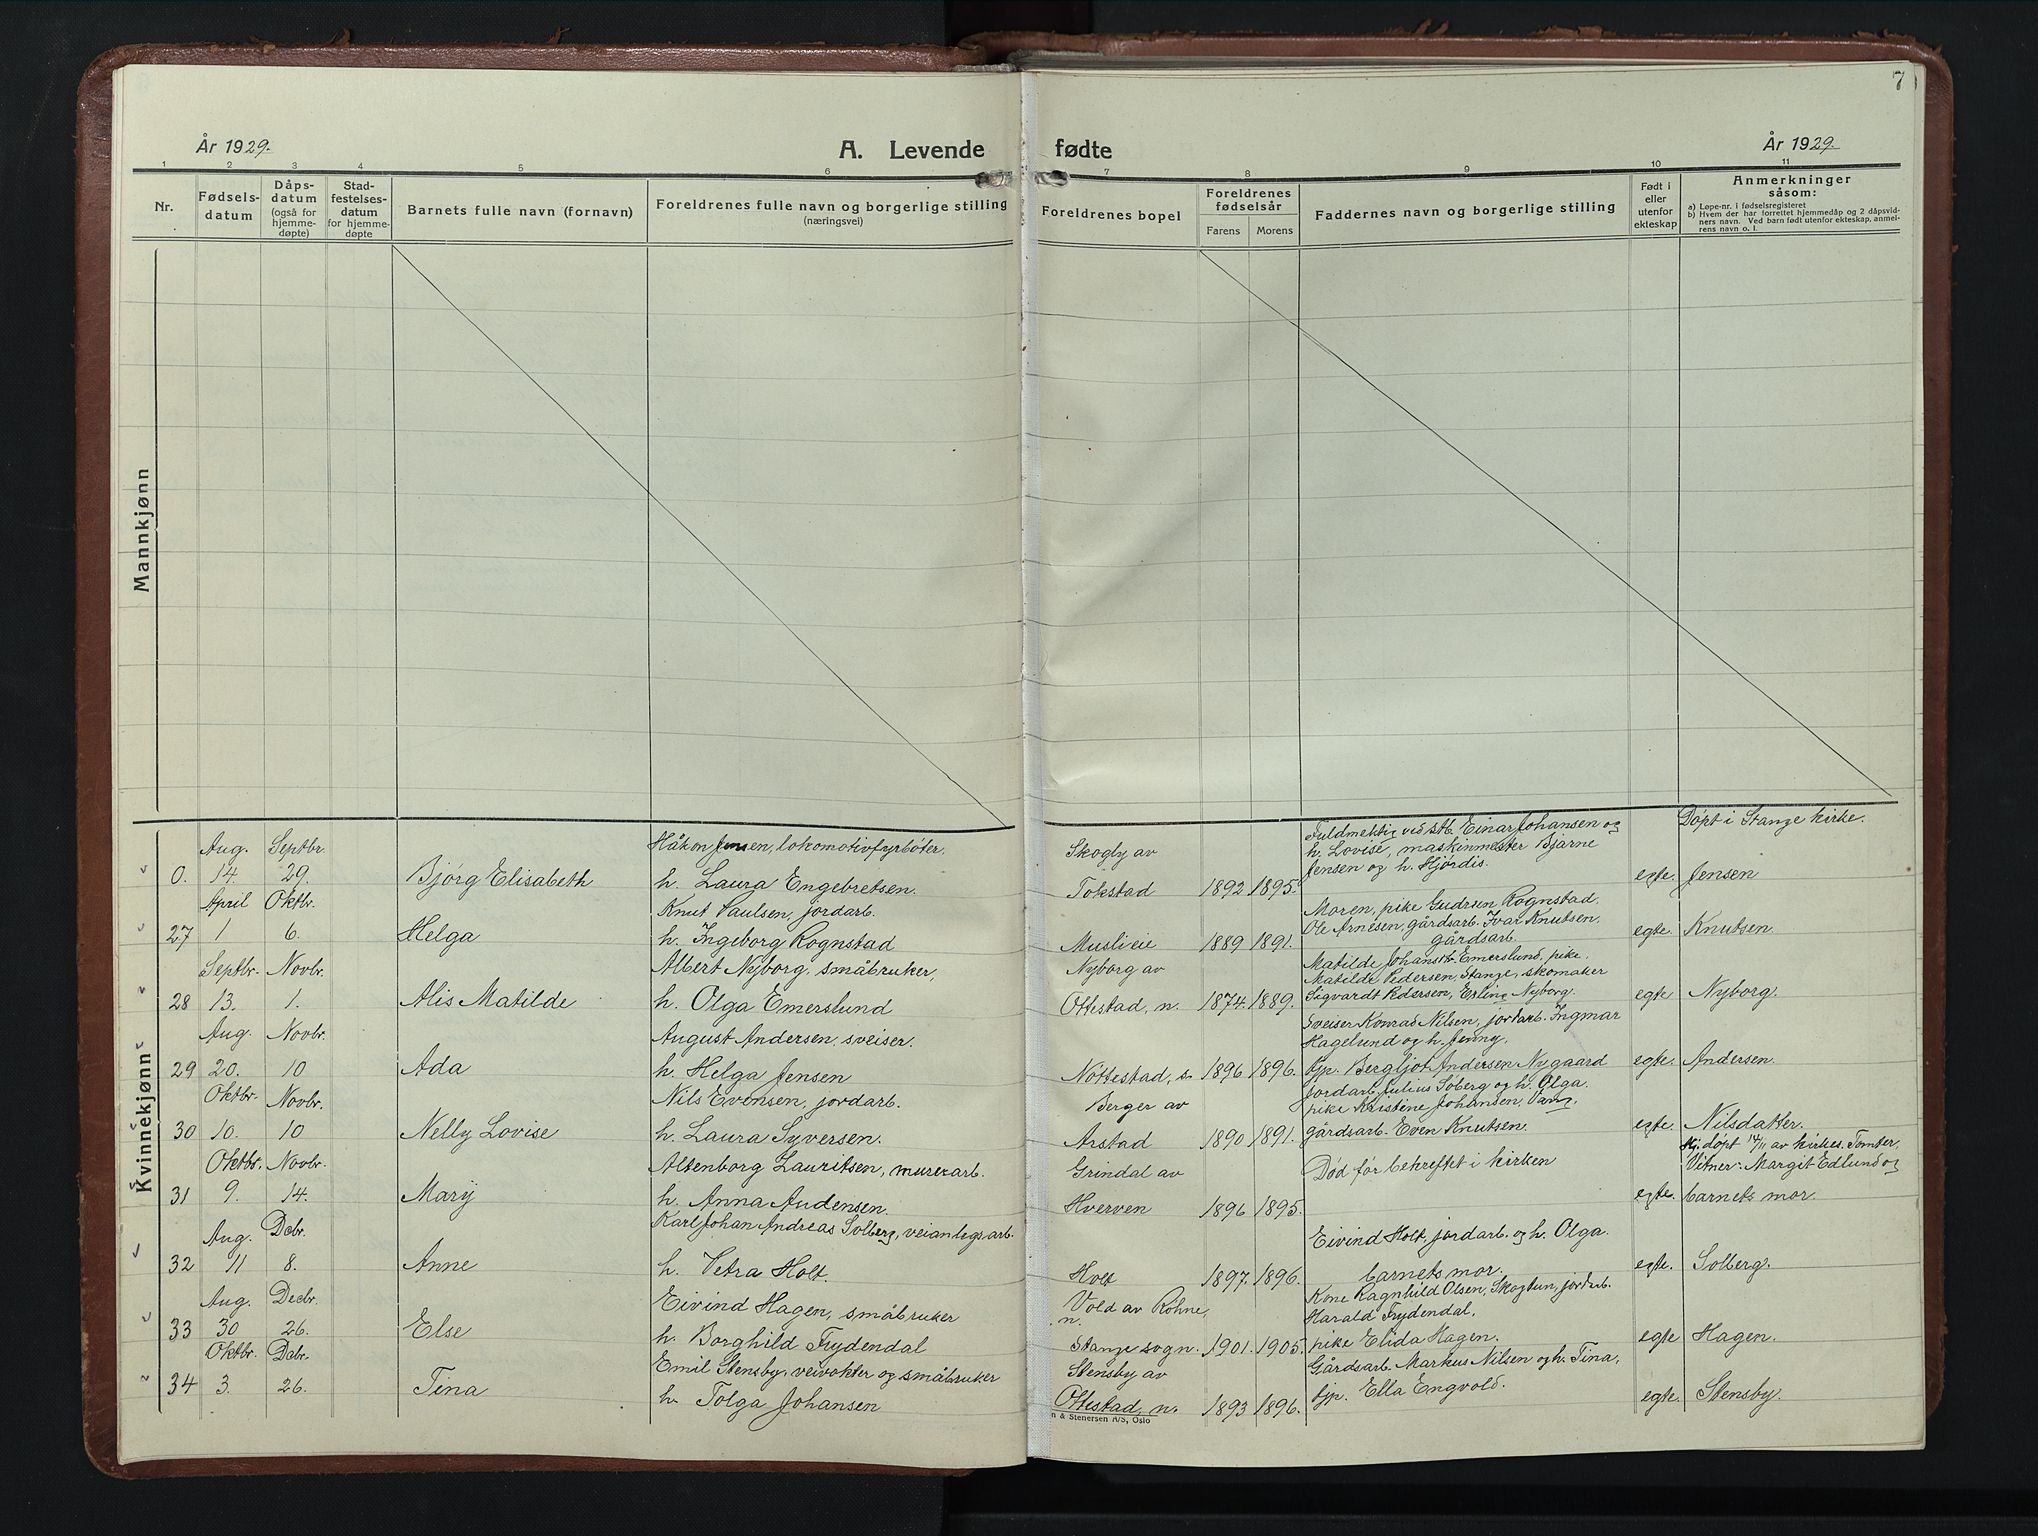 7
År 1929.
A. Levende fødte
År 1929.
1 2 3 4 5 6 7 8 9 10 11
Nr.
Fødsels-
datum
Dåps-
datum
(også for
hjemme-
døpte)
Stad-
festelses-
datum
for hjemme-
døpte
Barnets fulle navn (fornavn)
Foreldrenes fulle navn og borgerlige stilling
(næringsvei)
Foreldrenes bopel
Foreldrenes
fødselsår
Farens Morens
Faddernes navn og borgerlige stilling
Født i
eller
utenfor
ekteskap
Anmerkninger
såsom:
a) Løpe-nr. i fødselsregisteret
b) Hvem der har forrettet hjemmedåp og 2 dåpsvid-
ners navn. Ved barn født utenfor ekteskap, anmel-
rens navn o. l.
Mannkjønn
Kvinnekjønn
0.
Aug. 14.
Septbr. 29.
Bjørg Elisabeth
Håkon Jensen, lokomotivfyrbøter.
h. Laura Engebretsen.
Skogly av
Tokstad
1892 1895.
Fuldmektig ved stb. Einar Johansen og
h. Lovise, maskinmester Bjarne
Jensen og h. Hjørdis.
egte.
Døpt i Stange kirke.
Jensen
27
April 1
Oktbr. 6.
Helga
Knut Paulsen, jordarb.
h. Ingeborg Rognstad
Muslieie
1889 1891.
Moren, pike Gudrun Rognstad.
Ole Arnesen, gårdsarb. Ivar Knutsen.
gårdsarb.
egte.
Knutsen.
28
Septbr. 13.
Novbr. 1.
Alis Matilde
Albert Nyborg, småbruker,
h. Olga Emerslund
Nyborg av
Ottestad, n.
1874. 1889.
Matilde Johansdtr. Emerslund, pike.
Matilde Pedersen, Stange, skomaker
Sigvardt Pedersen, Erling Nyborg.
egte
Nyborg.
29
Aug. 20.
Novbr. 10
Ada
August Andersen, sveiser.
h. Helga Jensen
Nöttestad, s.
1896. 1896.
Sveiser Konrad Nilsen, jordarb. Ingmar
Hagelund og h. Jenny.
tjp. Bergljot Andersen Nygaard
egte.
Andersen.
30
Oktbr. 10.
Novbr. 10
Nelly Lovise
Nils Evensen, jordarb.
h. Laura Syversen.
Berger av
Arstad
1890 1891.
jordarb. Julius Søberg og h. Olga.
pike Kristine Johansen, Vang.
gårdsarb. Even Knutsen.
egte.
Nilsdatter.
31
Oktbr. 9.
Novbr. 14.
Mary
Altenborg Lauritsen, murerarb.
h. Anna Audensen.
Grindal av
Hverven
1896 1895.
Død før bekreftet i kirken
egte.
Hj. døpt 14/11 av kirkes. Tomter.
Vitner: Margit Edlund og
barnets mor.
32
Aug. 11
Decbr. 8.
Anne
Karl Johan Andreas Solberg, veianlegs arb.
h. Petra Holt.
Holt
1897. 1896.
Eivind Holt, jordarb. og h. Olga.
barnets mor.
egte.
Solberg.
33
Aug. 30
Decbr. 26.
Else
Eivind Hagen, småbruker
h. Borghild Frydendal
Vold av Rohne,
n.
Stange sogn.
1901. 1905.
Kone Ragnhild Olsen, Skogtun, jordarb.
Harald Frydendal.
pike Elida Hagen.
egte
Hagen.
34
Oktbr. 3.
Decbr. 26.
Tina
Emil Stensby, veivokter og småbruker
h. Tolga Johansen
Stensby av
Ottestad, n.
1893 1896.
Gårdsarb. Markus Nilsen og h. Tina,
tjp. Ella Engvold.
egte.
Stensby.
n & Stenersen A/S, Oslo